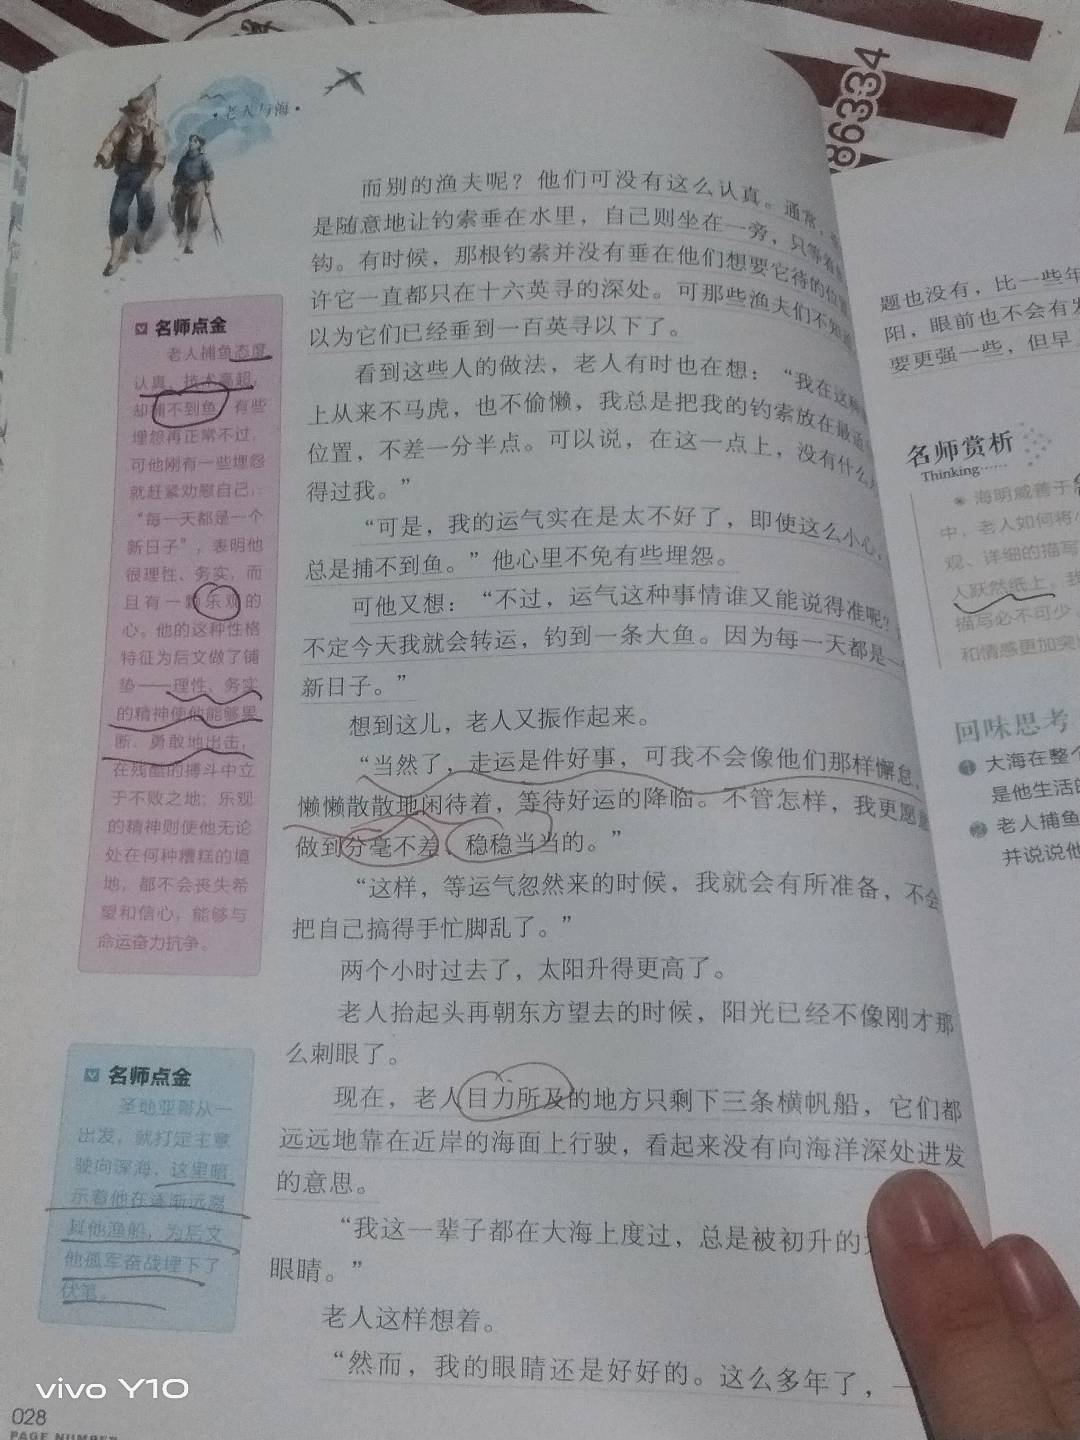 ·老人与海·
86334
而别的渔夫呢？他们可没有这么认真。通常，
是随意地让钓索垂在水里，自己则坐在一旁，只等着
钩。有时候，那根钓索并没有垂在他们想要它待的位置
许它一直都只在十六英寻的深处。可那些渔夫们不知道
以为它们已经垂到一百英寻以下了。
看到这些人的做法，老人有时也在想：“我在这种
上从来不马虎，也不偷懒，我总是把我的钓索放在最适
位置，不差一分半点。可以说，在这一点上，没有什么
得过我。”
“可是，我的运气实在是太不好了，即使这么小心，
总是捕不到鱼。”他心里不免有些埋怨。
可他又想：“不过，运气这种事情谁又能说得准呢？
不定今天我就会转运，钓到一条大鱼。因为每一天都是一
新日子。”
想到这儿，老人又振作起来。
“当然了，走运是件好事，可我不会像他们那样懈怠，
懒懒散散地闲待着，等待好运的降临。不管怎样，我更愿
做到分毫不差、稳稳当当的。”
“这样，等运气忽然来的时候，我就会有所准备，不会
把自己搞得手忙脚乱了。”
两个小时过去了，太阳升得更高了。
老人抬起头再朝东方望去的时候，阳光已经不像刚才那
么刺眼了。
现在，老人目力所及的地方只剩下三条横帆船，它们都
远远地靠在近岸的海面上行驶，看起来没有向海洋深处进发
的意思。
“我这一辈子都在大海上度过，总是被初升的
眼睛。”
老人这样想着。
“然而，我的眼睛还是好好的。这么多年了，一
名师点金
老人捕鱼态度
认真、技术高超，
却捕不到鱼，有些
埋怨再正常不过，
可他刚有一些埋怨
就赶紧劝慰自己，
“每一天都是一个
新日子”，表明他
很理性、务实，而
且有一颗乐观的
心。他的这种性格
特征为后文做了铺
垫——理性、务实
的精神使他能够果
断、勇敢地出击，
在残酷的搏斗中立
于不败之地；乐观
的精神则使他无论
处在何种糟糕的境
地，都不会丧失希
望和信心，能够与
命运奋力抗争。
名师点金
圣地亚哥从一
出发，就打定主意
驶向深海，这里暗
示着他在逐渐远离
其他渔船，为后文
他孤军奋战埋下了
伏笔。
028
PAGE NUMBER
vivo Y10
题也没有，比一些年
阳，眼前也不会有发
要更强一些，但早
名师赏析
Thinking……
海明威善于
中，老人如何将
观、详细的描写
人跃然纸上。我
描写必不可少，
和情感更加突
回味思考
1 大海在整个
是他生活的
2 老人捕鱼
并说说他